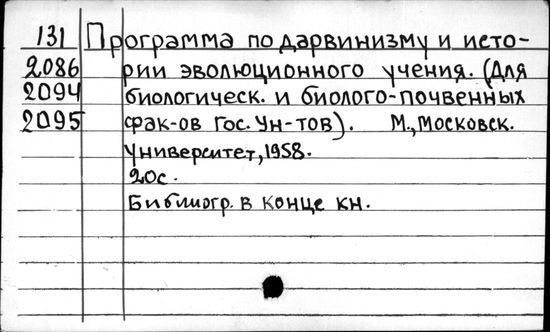 131 Программа по дарвинизму и исто-
2086 рии эволюционного учения. (Для
2094 биологическ. и биолого-почвенных
2095 фак-ов Гос. Ун-тов). М., Московск.
университет, 1958.
20с.
Библиогр. в конце кн.